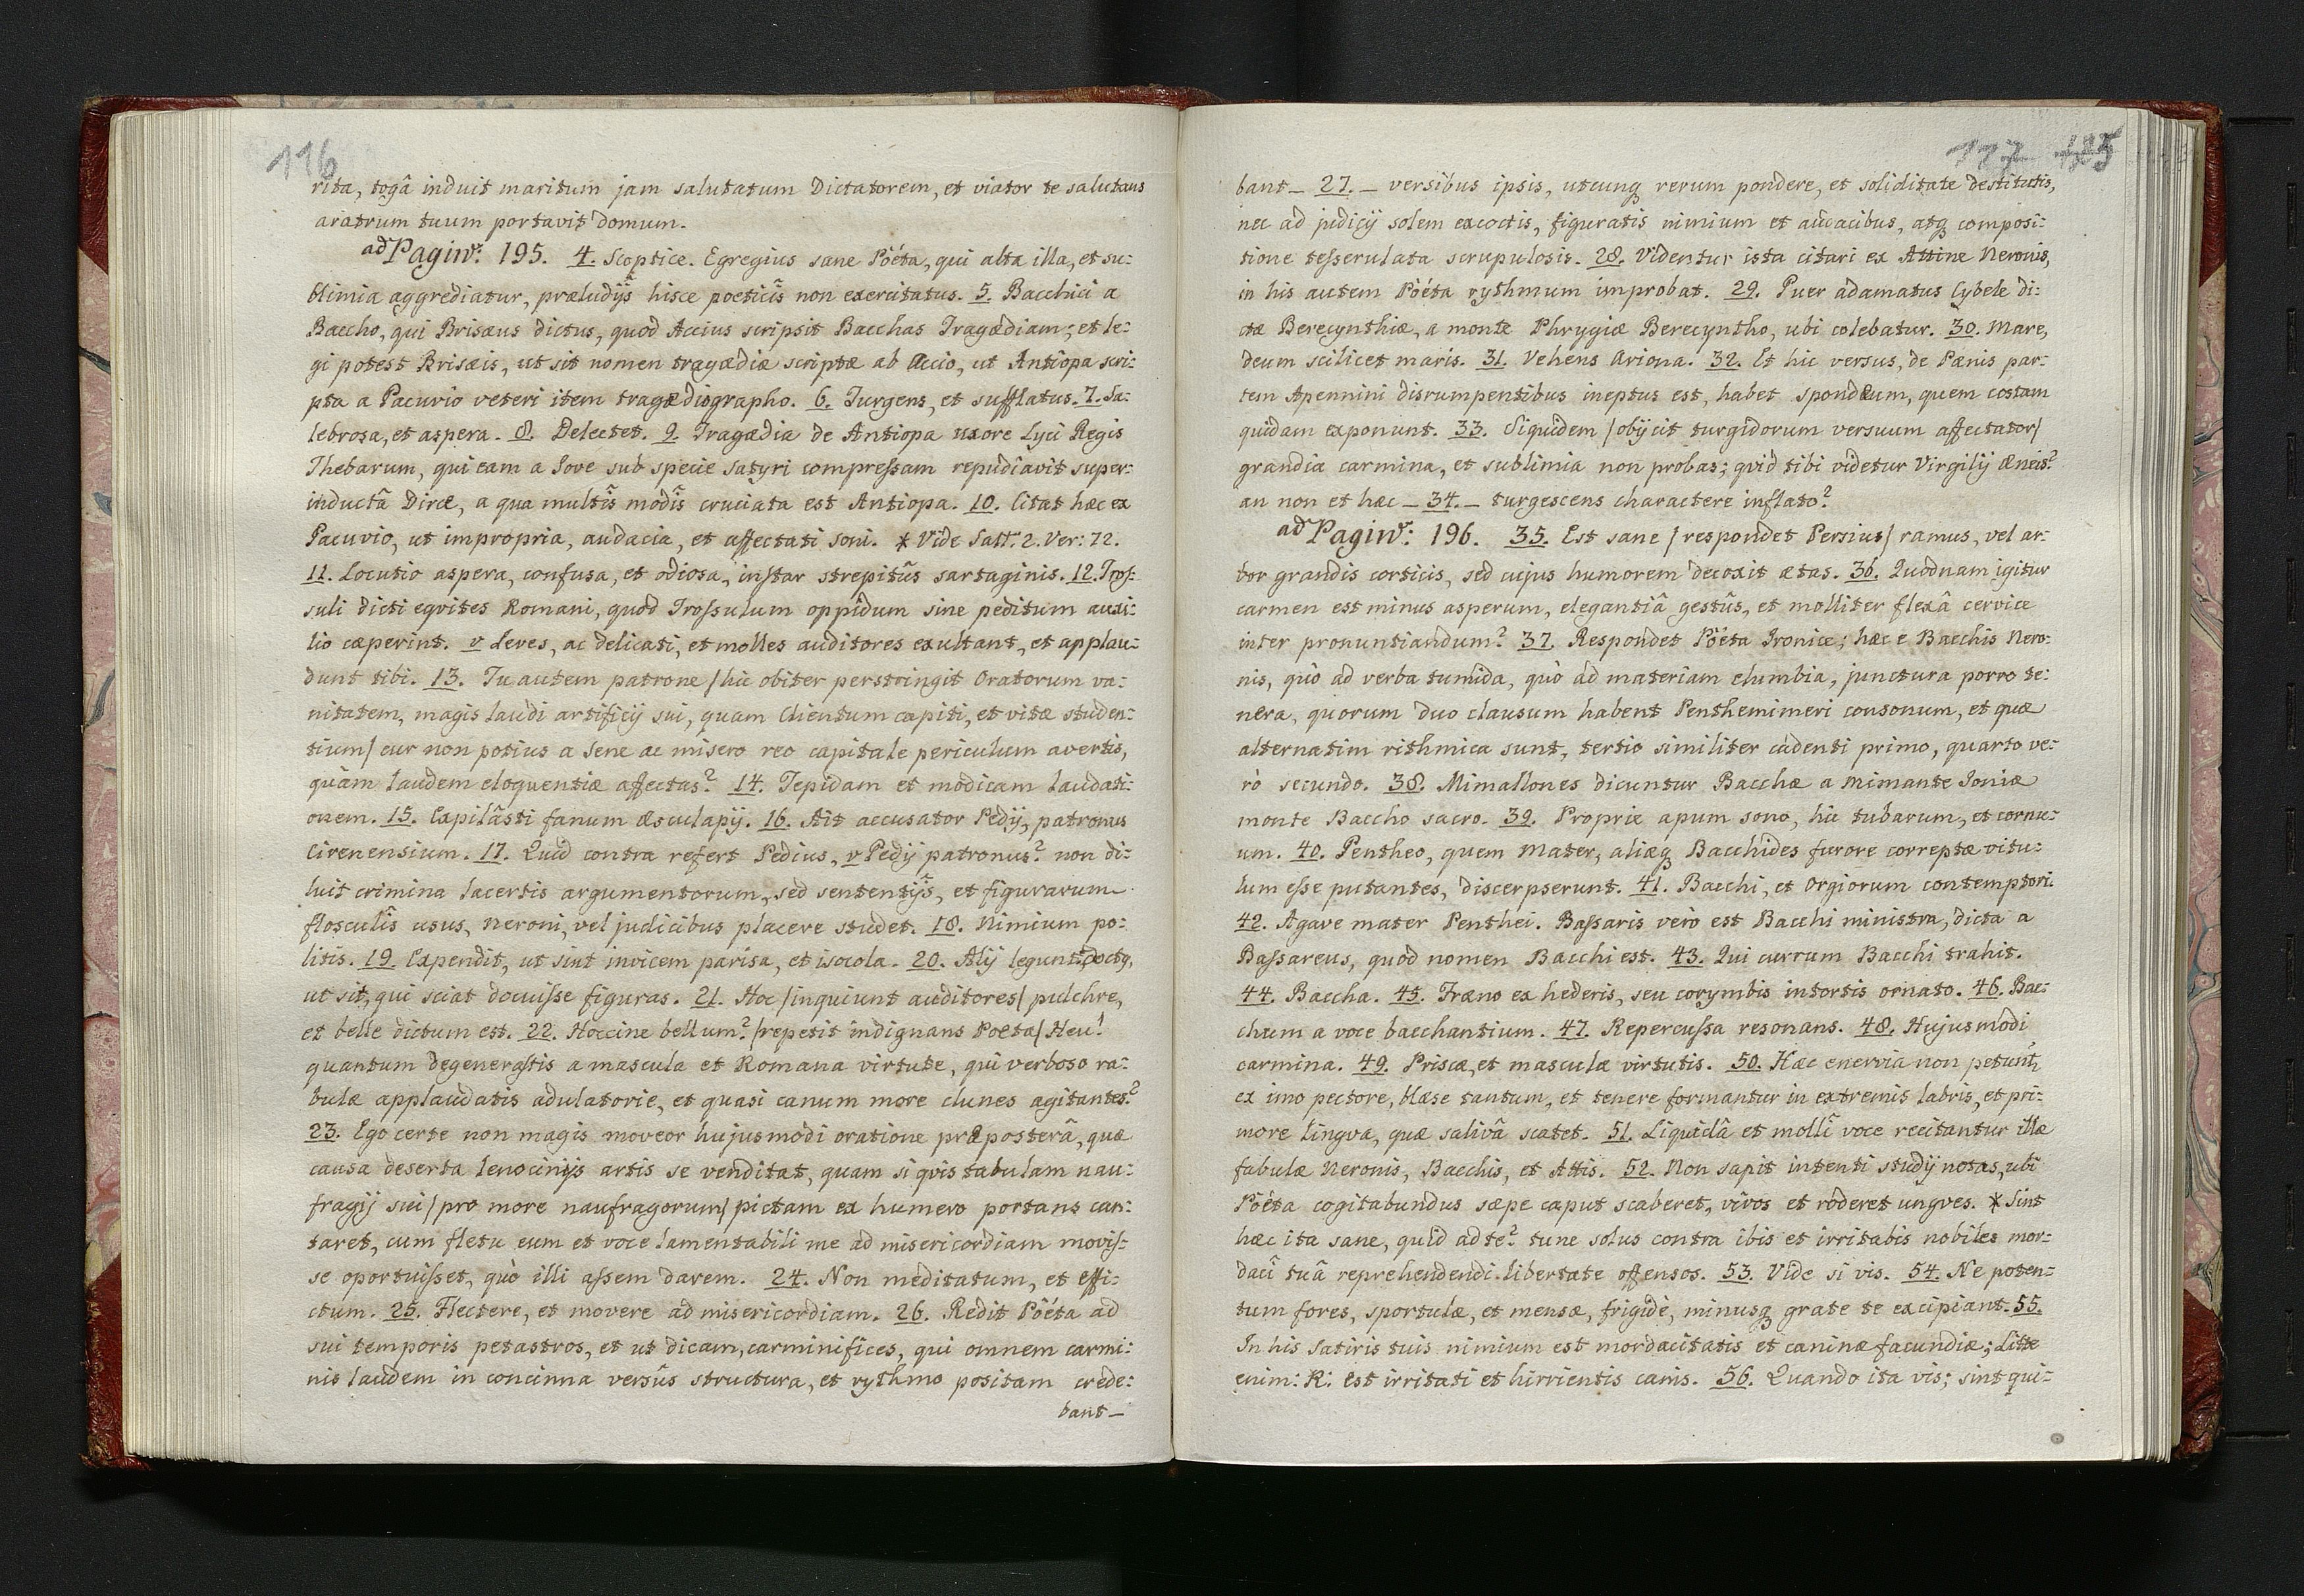 116
rita, togâ induit maritum jam salutatum Dictatorem, et viator te salutans
aratrum tuum portavit domum.
ad Pagin: 195. 4. Scoptice. Egregius sane Poëta, qui alta illa, et su:
blimia aggrediatur, præludijs hisce poeticis non exercitatus. 5. Bacchici a
Baccho, qui Brisæus dictus, quod Accius scripsit Bacchas Tragædiam; et le:
gi potest Brisæis, ut sit nomen tragædiæ scriptæ ab Accio, ut Antiopa scri:
pta a Pacuvio veteri item tragædiographo. 6. Turgens, et sufflatus. 7. Sa:
lebrosa, et aspera. 8. Delectet. 9. Tragædia de Antiopa uxore Lyci Regis
Thebarum, qui eam a Jove sub specie satyri compressam repudiavit super:
inductâ Dirce, a qua multis modis cruciata est Antiopa. 10. Citat hæc ex
Pacuvio, ut impropria, audacia, et affectati soni. * Vide Satt: 2. Ver: 72.
11. Locutio aspera, confusa, et odiosa, instar strepitûs sartaginis. 12. Tros:
suli dicti eqvites Romani, quod Trossulum oppidum sine peditum auxi:
lio cæperint. v Leves, ac delicati, et molles auditores exultant, et applau:
dunt tibi. 13. Tu autem patrone /hic obiter perstringit Oratorum va:
nitatem, magis laudi artificij sui, quam Clientum capiti, et vitæ studen:
tium/ cur non potius a sene ac misero reo capitale periculum avertis,
quàm laudem eloquentiæ affectas? 14. Tepidam et modicam laudati:
onem. 15. Expilâsti fanum Æsculapij. 16. Ait accusator Pedij, patronus
Cirenensium. 17. Quid contra refert Pedius, v Pedij patronus? non di:
luit crimina lacertis argumentorum, sed sententijs, et figurarum
flosculis usus, Neroni, vel judicibus placere studet. 18. Nimium po:
litis. 19. Expendit, ut sint invicem parisa, et isocola. 20. Alij legunt
ut sit, qui sciat docuisse figuras. 21. Hoc /inquiunt auditores/ pulchre,
et belle dictum est. 22. Hoccine bellum? /repetit indignans Poeta/ Heu!
quantum degenerastis a mascula et Romana virtute, qui verboso ra:
bulæ applaudatis adulatorie, et quasi canum more clunes agitantes?
23. Ego certe non magis moveor hujusmodi oratione præposterâ, quæ
causa deserta lenocinijs artis se venditat, quam si qvis tabulam nau:
fragij sui /pro more naufragorum/ pictam ex humero portans can:
taret, cum fletu eum et voce lamentabili me ad misericordiam movis:
se oportuisset, quò illi assem darem. 24. Non meditatum, et effi:
ctum. 25. Flectere, et movere ad misericordiam. 26. Redit Poëta ad
sui temporis petastros, et ut dicam, carminifices, qui omnem carmi:
nis laudem in concinna versûs structura, et rythmo positam crede:
bant–
117 125
bant– 27. – versibus ipsis, utcunq rerum pondere, et soliditate destitutis,
nec ad judicij solem excoctis, figuratis nimium et audacibus, atq composi:
tione tesserulata scrupulosis. 28. Videntur ista citari ex Attine Neronis,
in his autem Poëta rythmum improbat. 29. Puer adamatus Cybele di:
ctæ Berecynthiæ, a monte Phrygiæ Berecyntho, ubi colebatur. 30. Mare,
deum scilicet maris. 31. Vehens Ariona. 32. Et hic versus, de Pænis par:
tem Apennini disrumpentibus ineptus est, habet spondæum, quem costam
quidam exponunt. 33. Siquidem /obijcit turgidorum versuum affectator/
grandia carmina, et sublimia non probas; qvid tibi videtur Virgilij Æneis?
an non et hæc – 34. – turgescens charactere inflato?
ad Pagin: 196. 35. Est sane /respondet Persius/ ramus, vel ar:
bor grandis corticis, sed cujus humorem decoxit ætas. 36. Quodnam igitur
carmen est minus asperum, elegantiâ gestûs, et molliter flexâ cervice
inter pronuntiandum? 37. Respondet Poëta Ironice; hæc e Bacchis Nero:
nis, quò ad verba tumida, quò ad materiam elumbia, junctura porro te:
nera, quorum duo clausum habent Penthemimeri consonum, et quæ
alternatim rithmica sunt, tertio similiter cadenti primo, quarto ve:
rò secundo. 38. Mimallones dicuntur Bacchæ a Mimante Joniæ
monte Baccho sacro. 39. Proprie apum sono, hic tubarum, et cornu:
um. 40. Pentheo, quem Mater, aliæq Bacchides furore correptæ vitu:
lum esse putantes, discerpserunt. 41. Bacchi, et Orgiorum contemptori.
42. Agave mater Penthei. Bassaris verò est Bacchi ministra, dicta a
Bassareus, quod nomen Bacchi est. 43. Qui currum Bacchi trahit.
44. Baccha. 45. Fræno ex hederis, seu corymbis intortis ornato. 46. Bac:
chum a voce bacchantium. 47. Repercussa resonans. 48. Hujusmodi
carmina. 49. Priscæ, et masculæ virtutis. 50. Hæc enervia non petunt,
ex imo pectore, blæse tantum, et tenere formantur in extremis labris, et pri:
more lingva, quæ salivâ scatet. 51. Liquidâ et molli voce recitantur illæ
fabulæ Neronis, Bacchis, et Attis. 52. Non sapit intenti studij notas, ubi
Poëta cogitabundus sæpe caput scaberet, vivos et roderet ungves. * Sint
hæc ita sane, quid ad te? tune solus contra ibis et irritabis nobiles mor:
daci tuâ reprehendendi libertate offensos. 53. Vide si vis. 54. Ne poten:
tum fores, sportulæ, et mensæ, frigidè, minusq grate te excipiant. 55.
In his Satiris tuis nimium est mordacitatis et caninæ facundiæ; litte
enim: R: est irritati et hirrientis canis. 56. Quando ita vis; sint qui: